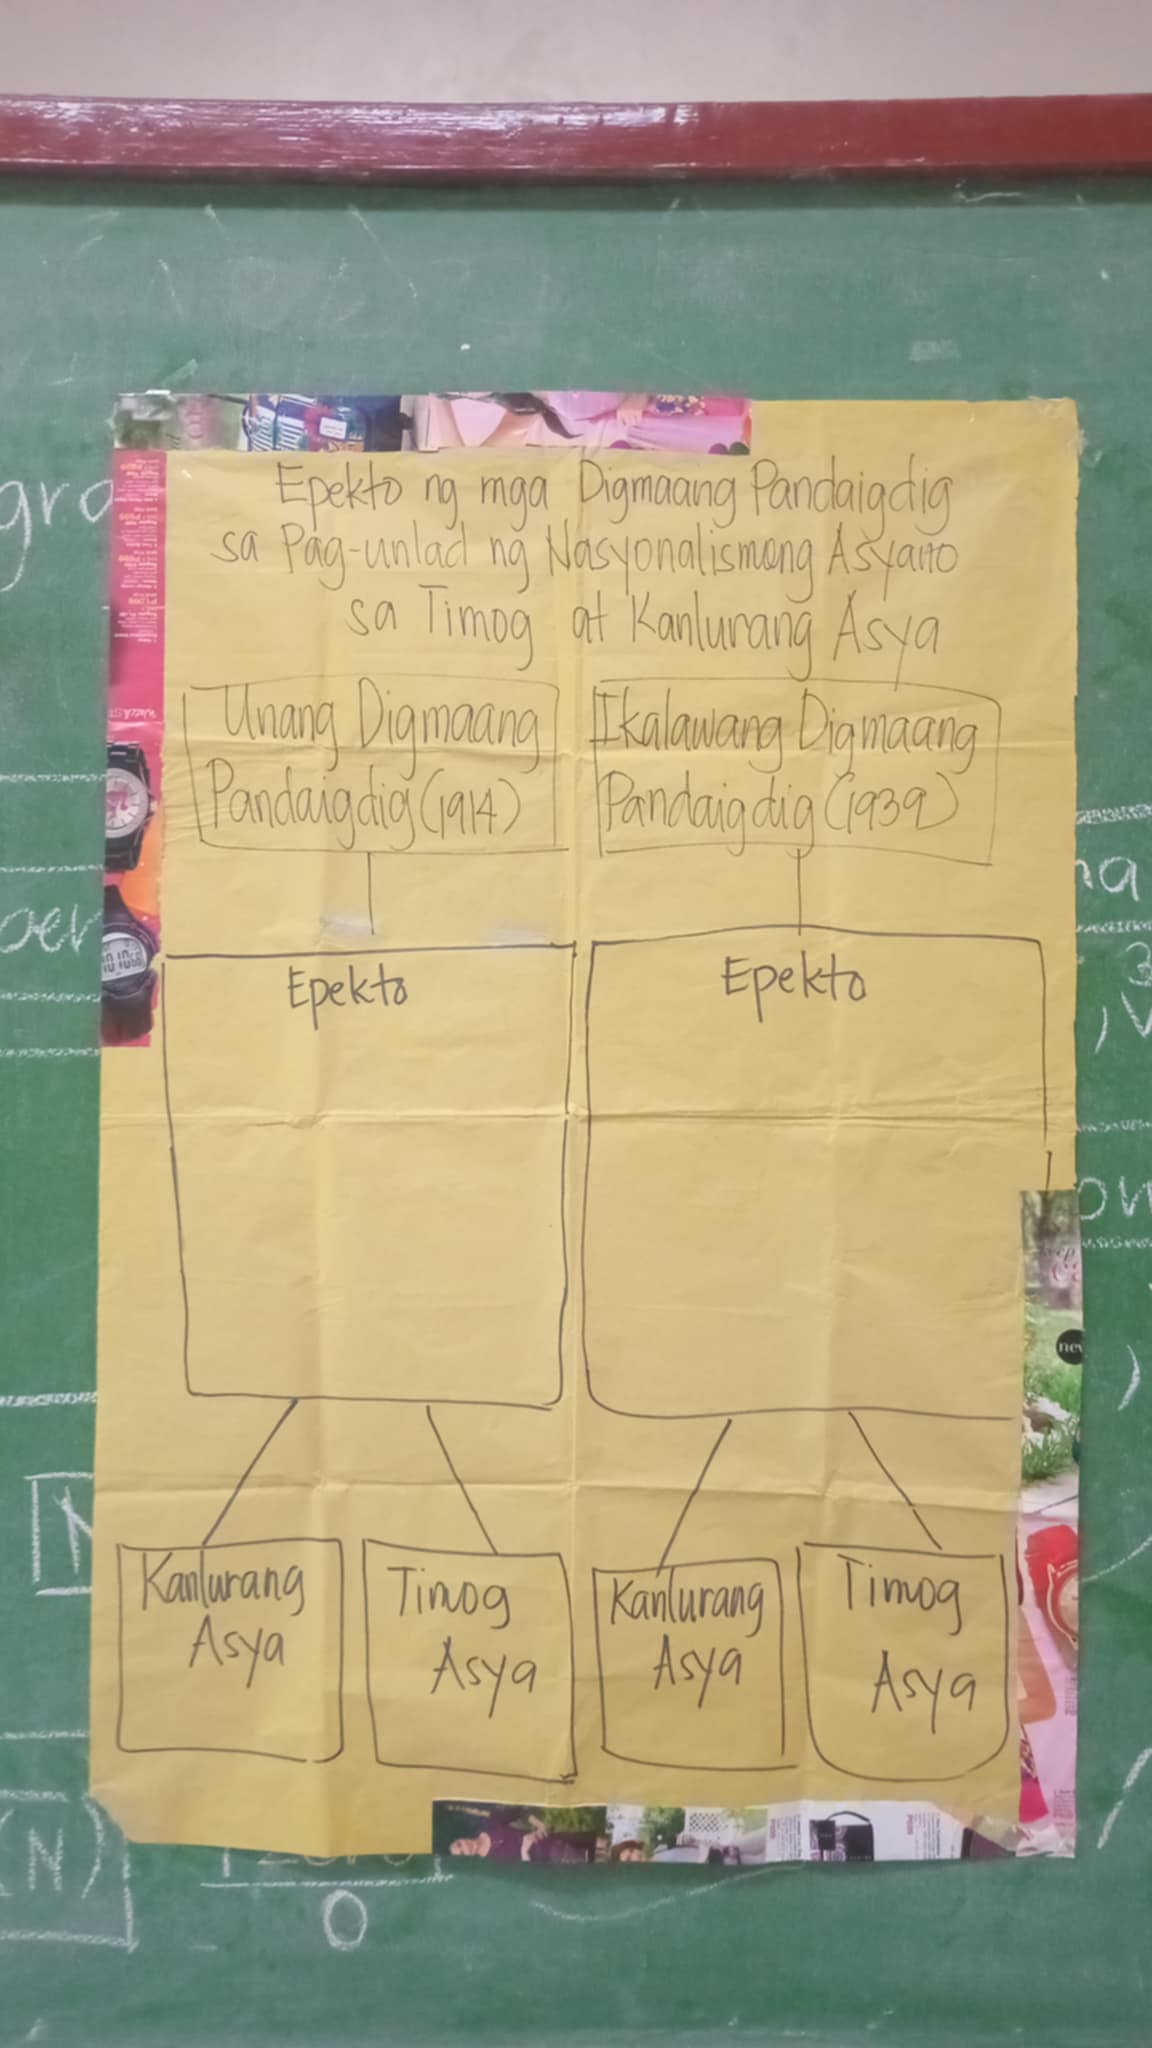 Epekto ng mga Digmaang Pandaigdig
sa Pag-unlad ng Nasyonalismong Asyano
sa Timog at Kanlurang Asya
Unang Digmaang
Pandaigdig (1914)
Ikalawang Digmaang
Pandaigdig (1939)
Epekto
Epekto
Kanlurang
Asya
Timog
Asya
Kanlurang
Asya
Timog
Asya
new
(N)
0